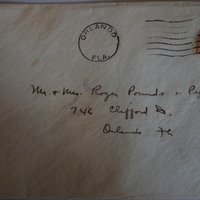 ORLANDO
FLA.
Mr. & Mrs. Roger Pounds &
746 Clifford D.
Orlando Fl